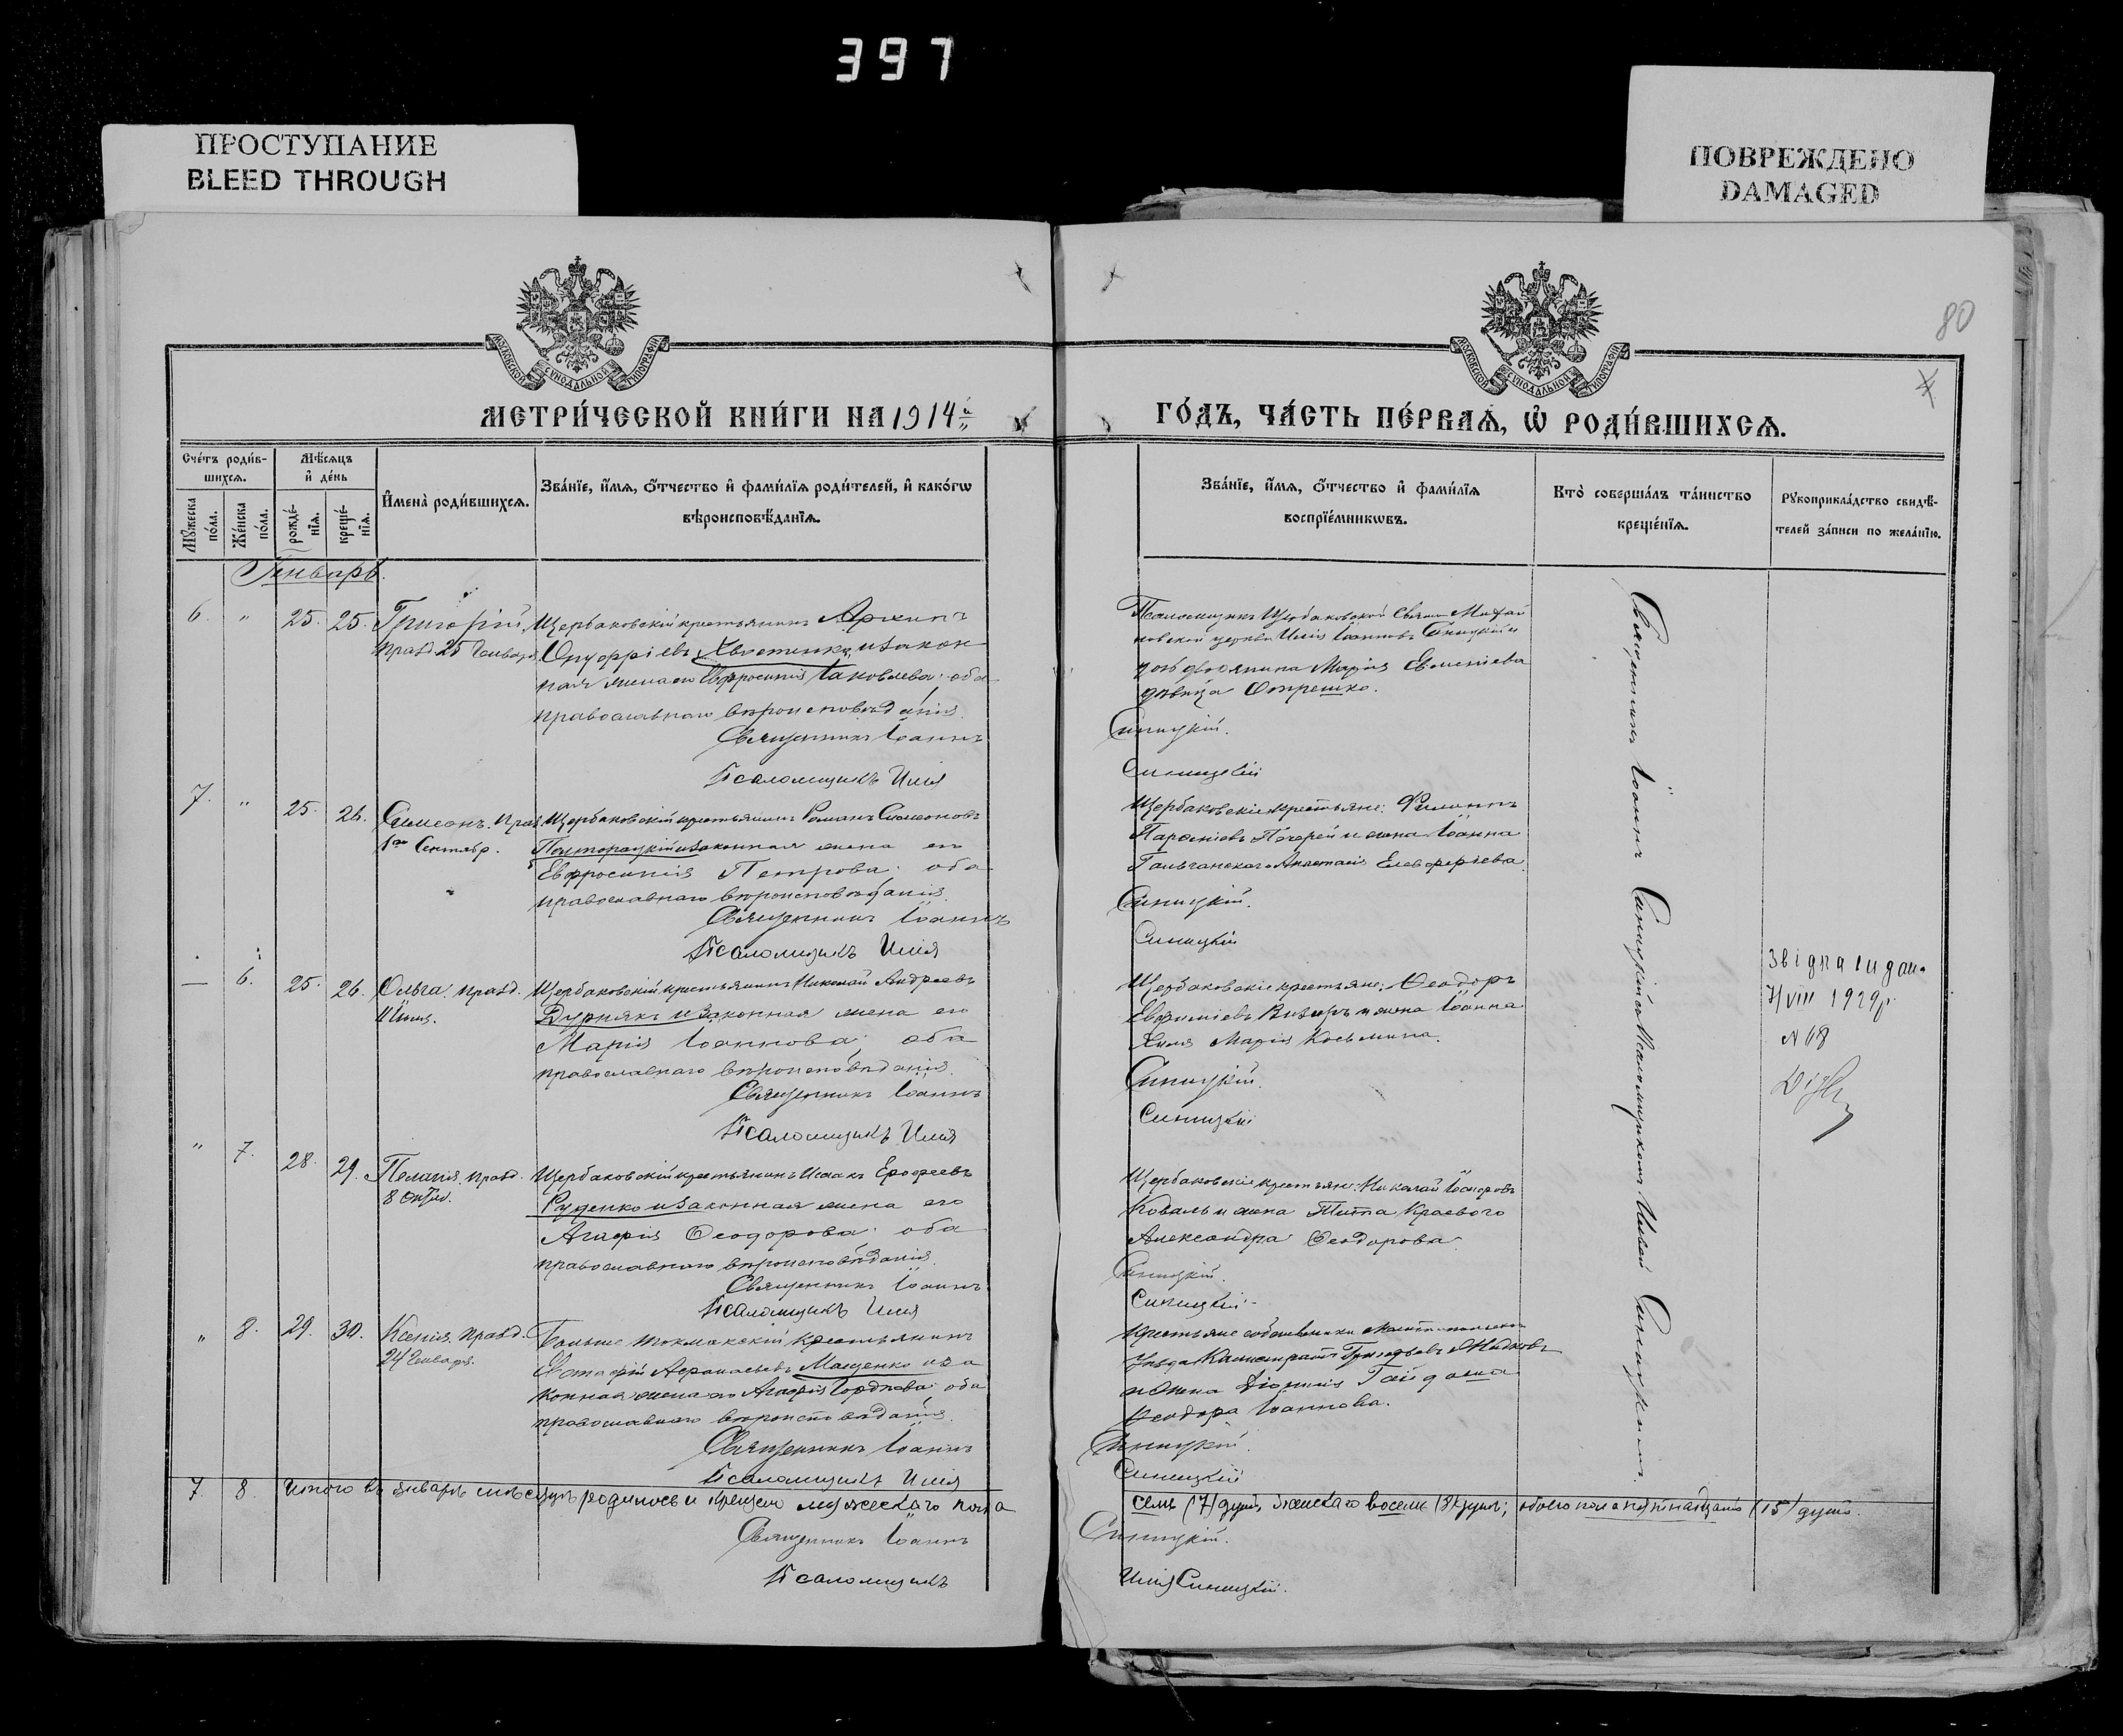 397
ПРОСТУПАНИЕ
BLEED THROUGH
ПОВРЕЖДЕНО
DAMAGED
80
МОСКОВСКОЙ СУНОДАЛЬНОЙ ТИПОГРАФІИ
МОСКОВСКОЙ СУНОДАЛЬНОЙ ТИПОГРАФІИ
МЕТРИ́ЧЕСКОЙ КНИ́ГИ НА 1914 й
ГО́ДЪ, ЧА́СТЬ ПЕ́РВАѦ, Ѡ҆ РОДИ́ВШИХСѦ.
Сче́тъ роди́в-
шихсѧ.
Мꙋ́жеска по́ла.
Же́нска по́ла.
Мѣ́сѧцъ
и҆ де́нь
рожде́-нїѧ.
креще́-нїѧ.
И҆мена̀ роди́вшихсѧ.
Зва́нїе, и҆́мѧ, ѻ҆́тчество и҆ фами́лїѧ роди́телей, и҆ како́гѡ
вѣроисповѣ́данїѧ.
Зва́нїе, и҆́мѧ, ѻ҆́тчество и҆ фами́лїѧ
воспрїе́мникѡвъ.
Кто̀ соверша́лъ та́инство
креще́нїѧ.
Рꙋкоприкла́дство свидѣ́-
телей за́писи по жела́нїю.
Генварь.
6. " 25. 25. Григорій,
празд. 25 Генваря
Щербаковскій крестьянинъ Архипъ
Онуфріевъ Хвостенко и закон
ная жена его Евфросинія Іаковлева: оба
православнаго вѣроисповѣданія.
Священникъ Іоаннъ
Псаломщикъ Илія
Псаломщикъ Щербаковской Свято Михай
ловской церкви Илія Іоанновъ Синицкій и
дочь дворянина Марія Евменіева
дѣвица Отрешко.
Синицкій.
Синицкій
7. " 25. 26. Симеонъ. празд.
1го Сентябр.
Щербаковскій крестьянинъ Романъ Симеоновъ
Полторацкій и законная жена его
Евфросинія Петрова: оба
православнаго вѣроисповѣданія.
Священникъ Іоаннъ
Псаломщикъ Илія
Щербаковскіе крестьяне: Филиппъ
Парфеніевъ и жена Іоанна
Анастасія Елевферіева.
Синицкій.
Синицкій
— 6. 25. 26. Ольга. празд.
11 Іюля.
Щербаковскій крестьянинъ Николай Андреевъ
Дурнякъ и законная жена его
Марія Іоаннова: оба
православнаго вѣроисповѣданія.
Священникъ Іоаннъ
Псаломщикъ Илія
Щербаковскіе крестьяне: Ѳеодоръ
Евфиміевъ и жена Іоанна
Марія Косьмина.
Синицкій.
Синицкій
7/VIII 1929р.
N 68
" 7. 28. 29. Пелагія. празд.
8 Октяб.
Щербаковскій крестьянинъ Исаакъ Ерофеевъ
Руденко и законная жена его
Агафія Ѳеодорова: оба
православнаго вѣроисповѣданія.
Священникъ Іоаннъ
Псаломщикъ Илія
Щербаковскіе крестьяне: Николай
Коваль и жена Тита Краевого
Александра Ѳеодорова.
Синицкій.
Синицкій.
" 8. 29. 30. Ксенія. празд.
24 Генваря.
Больше Токмакскій крестьянинъ
Евстафій Афанасьевъ Мащенко и за
конная жена его Агафія Гордѣева: оба
православнаго вѣроисповѣданія.
Священникъ Іоаннъ
Псаломщикъ Илія
Крестьяне собственники
Уѣзда Калистратъ Григорьевъ Жидковъ
и жена Діонисія Гайдаша
Ѳеодора Іоаннова.
Синицкій.
Синицкій
Священникъ Іоаннъ Синицкій съ Псаломщикомъ Иліей Синицкимъ.
7 8 Итого въ январѣ мѣсяцѣ родилось и крещено мужескаго пола семь (7) душъ, женскаго восемь (8) душъ; обоего пола пятнадцать (15) душъ.
Священникъ Іоаннъ
Синицкій.
Псаломщикъ
Илія Синицкій.